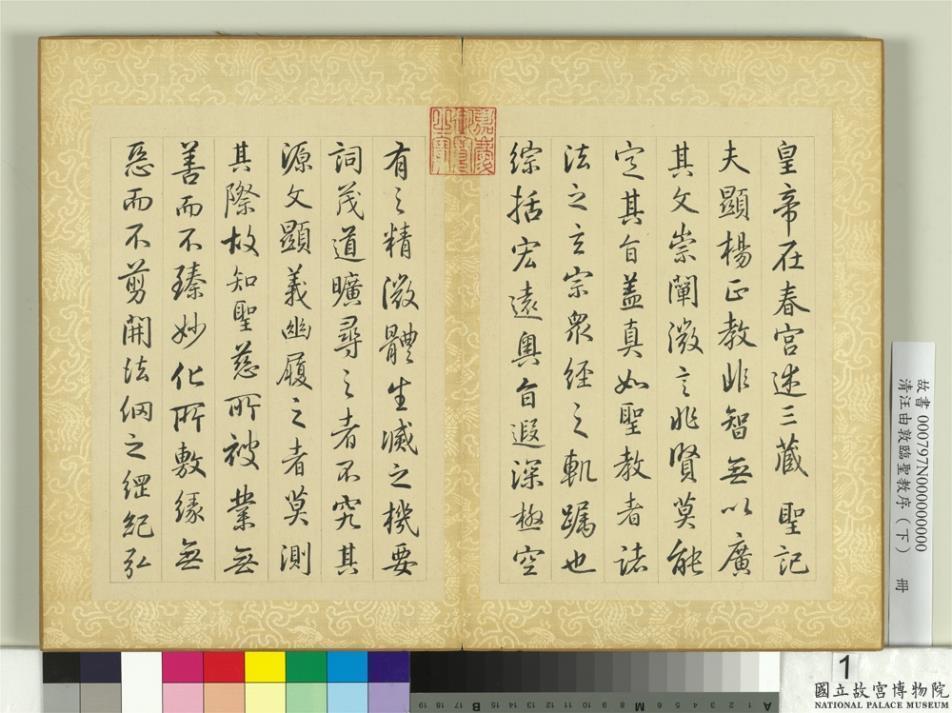 皇帝在春宮述三藏聖記
夫顯楊正教非智無以廣
其文崇闡微言非賢莫能
定其旨蓋真如聖教者諸
法之玄宗眾經之軌躅也
綜括宏遠奧旨遐深極空
嘉慶
御覽
之寶
有之精微體生滅之機要
詞茂道曠尋之者不究其
源文顯義幽履之者莫測
其際故知聖慈所被業無
善而不臻妙化所敷緣無
惡而不剪開法網之綱紀弘
故書 000797N000000000
清汪由敦臨聖教序（下） 冊
1
國立故宮博物院
NATIONAL PALACE MUSEUM